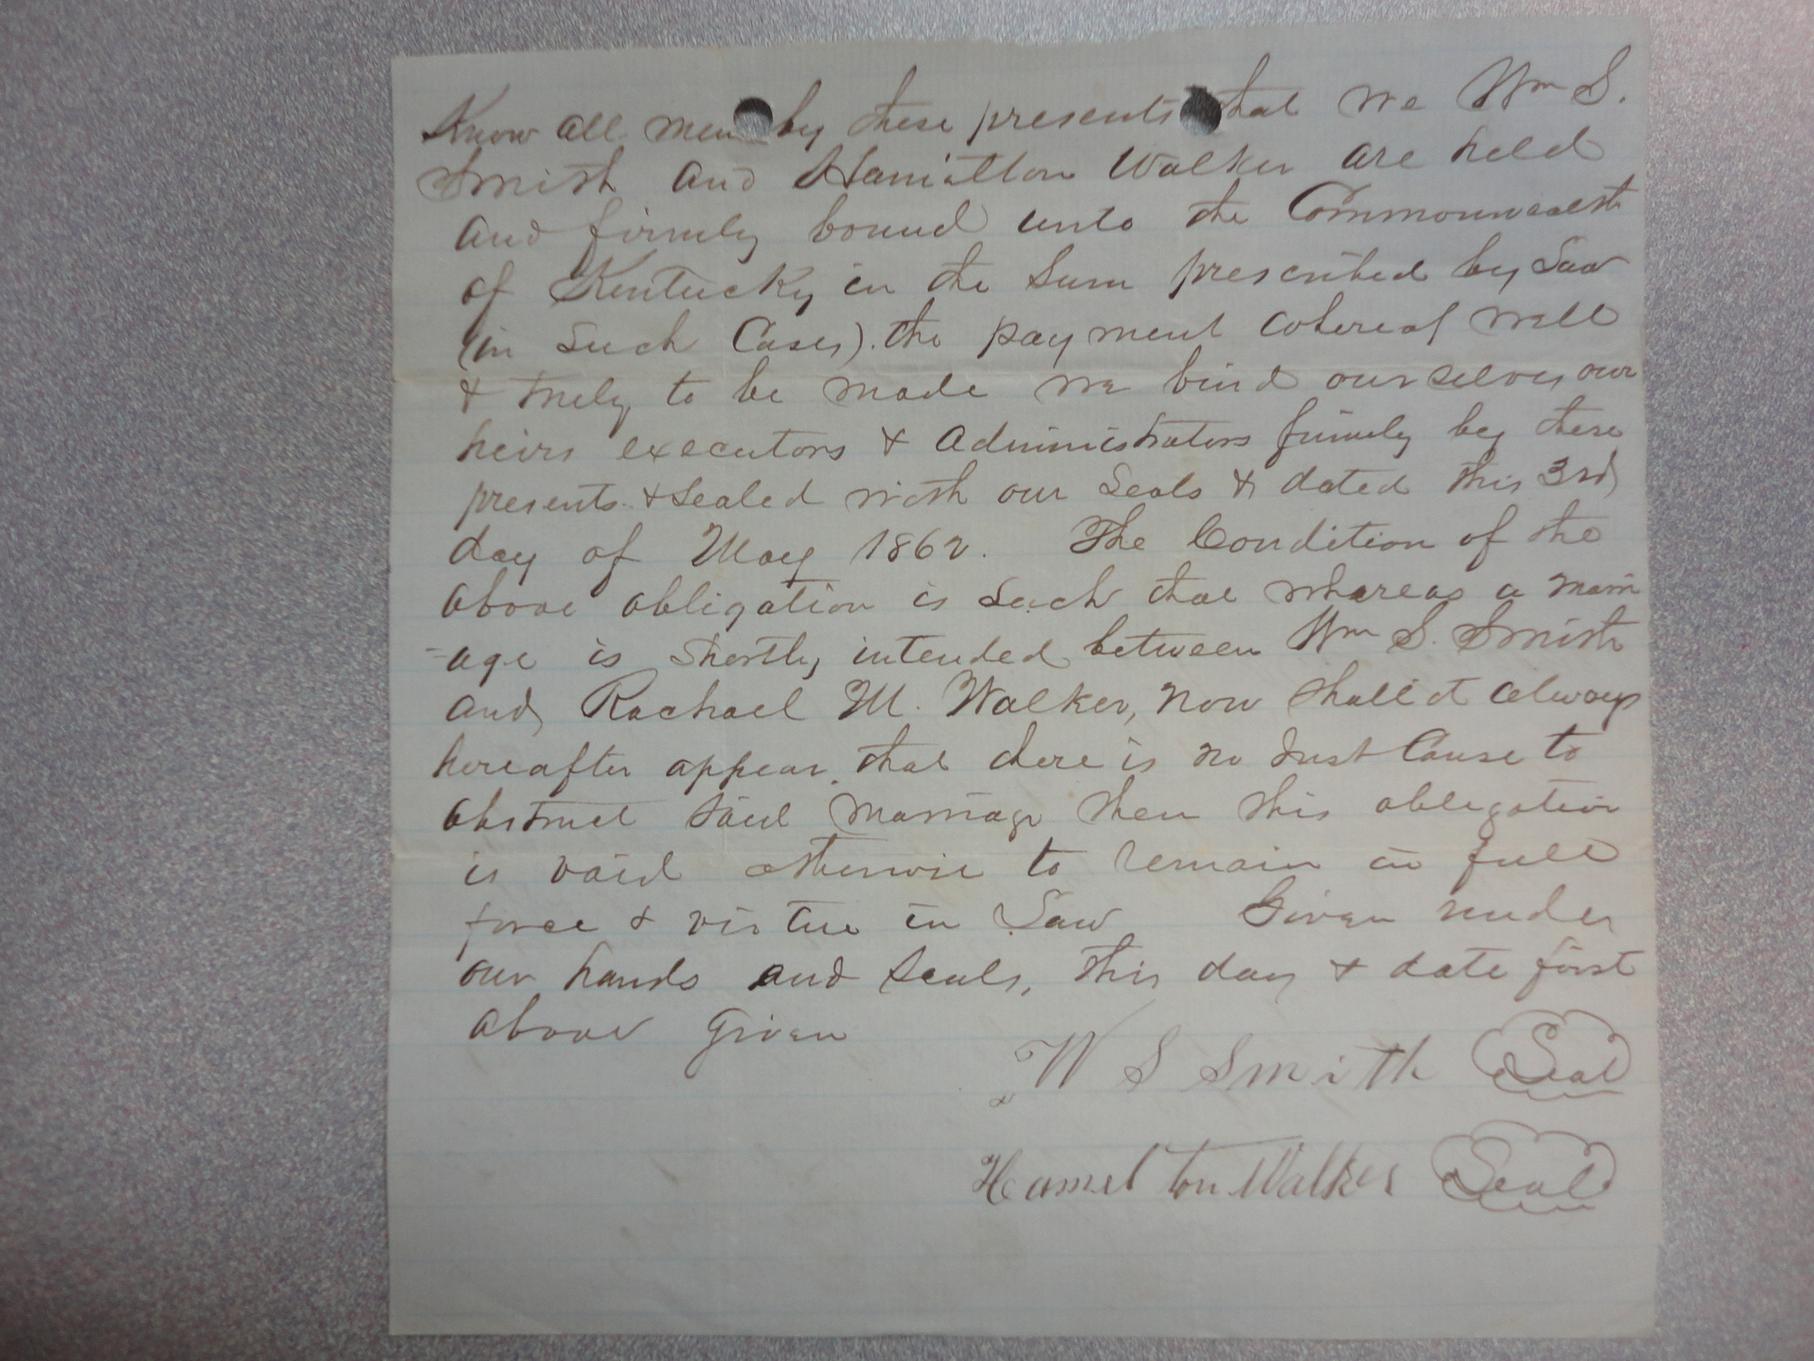 Know all men by these presents that we Wm S.
Smith and Hamilton Walker are held
and firmly bound unto the Commonwealth
of Kentucky in the Sum prescribed by Law
(in Such Cases). the payment whereof well
& truly to be made we bind ourselves our
heirs executors & administrators firmly by these
presents & Sealed with our Seals & dated this 3rd
day of May 1862. The Condition of the
above obligation is Such that whereas a marri
-age is Shortly intended between Wm S. Smith
and Rachael M. Walker, now Shall it always
hereafter appear that there is no Just Cause to
obstruct Said Marriage then this obligation
is void otherwise to remain in full
force & virtue in Law Given under
our hands and Seals, this day & date first
above Given
W S Smith Seal
Hamelton Walker Seal